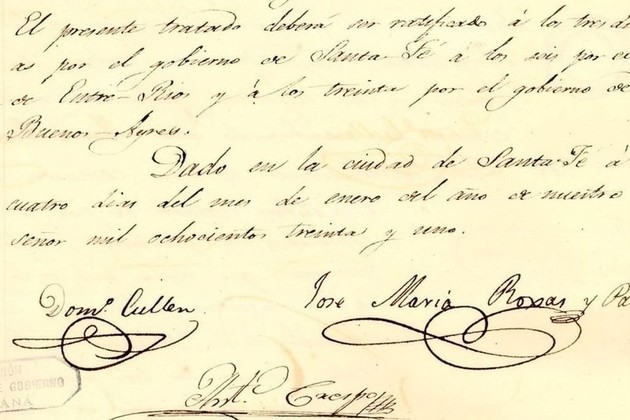 El presente tratado deberá ser ratificado á los tres di
as por el gobierno de Santa-Fé á los sois por el
de Entre-Rios y á los treinta por el gobierno de
Buenos-Ayres.
Dado en la ciudad de Santa-Fé á
cuatro dias del mes de enero del año de nuestro
señor mil ochocientos treinta y uno.
Domº. Cullen
José Maria Roxas y Pa
Antº. Crespo
DE GOBIERNO
ANÁ